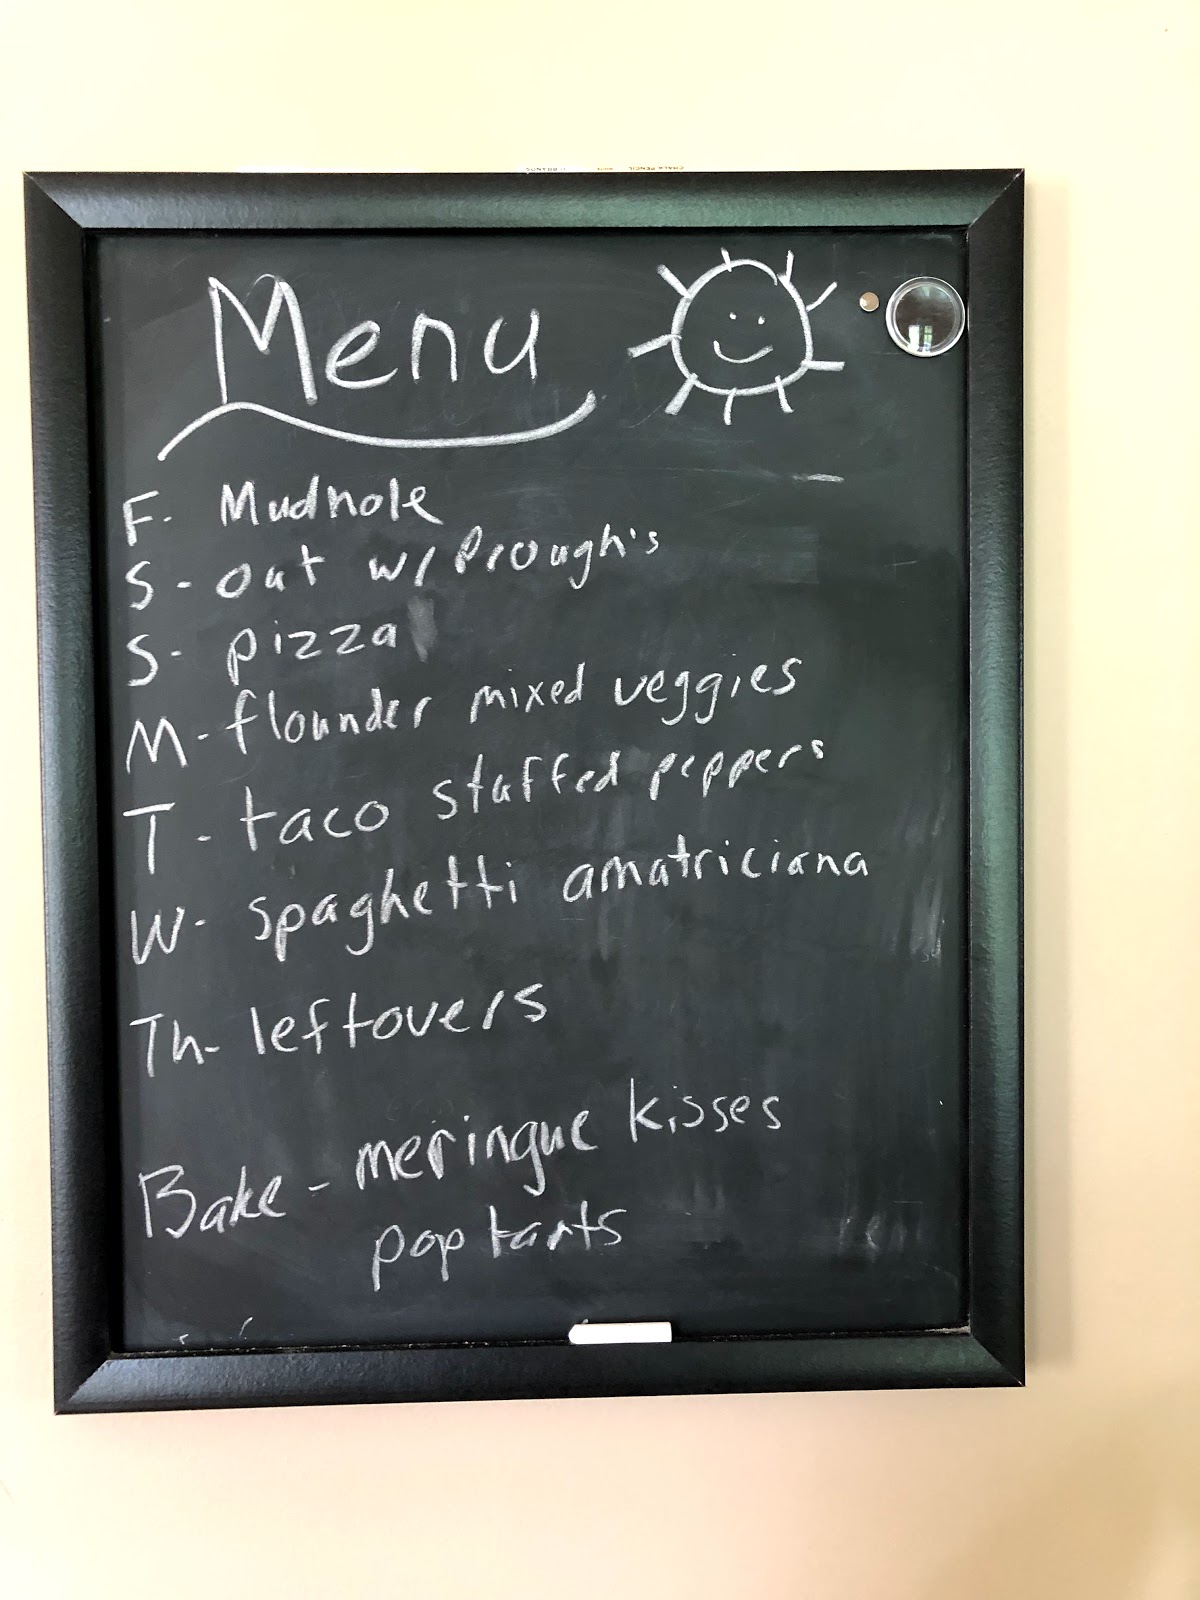 Menu
F. Mudhole
S - out w/ Prough's
S - pizza
M - flounder mixed veggies
T - taco stuffed peppers
W - spaghetti amatriciana
Th - leftovers
Bake - meringue kisses
pop tarts